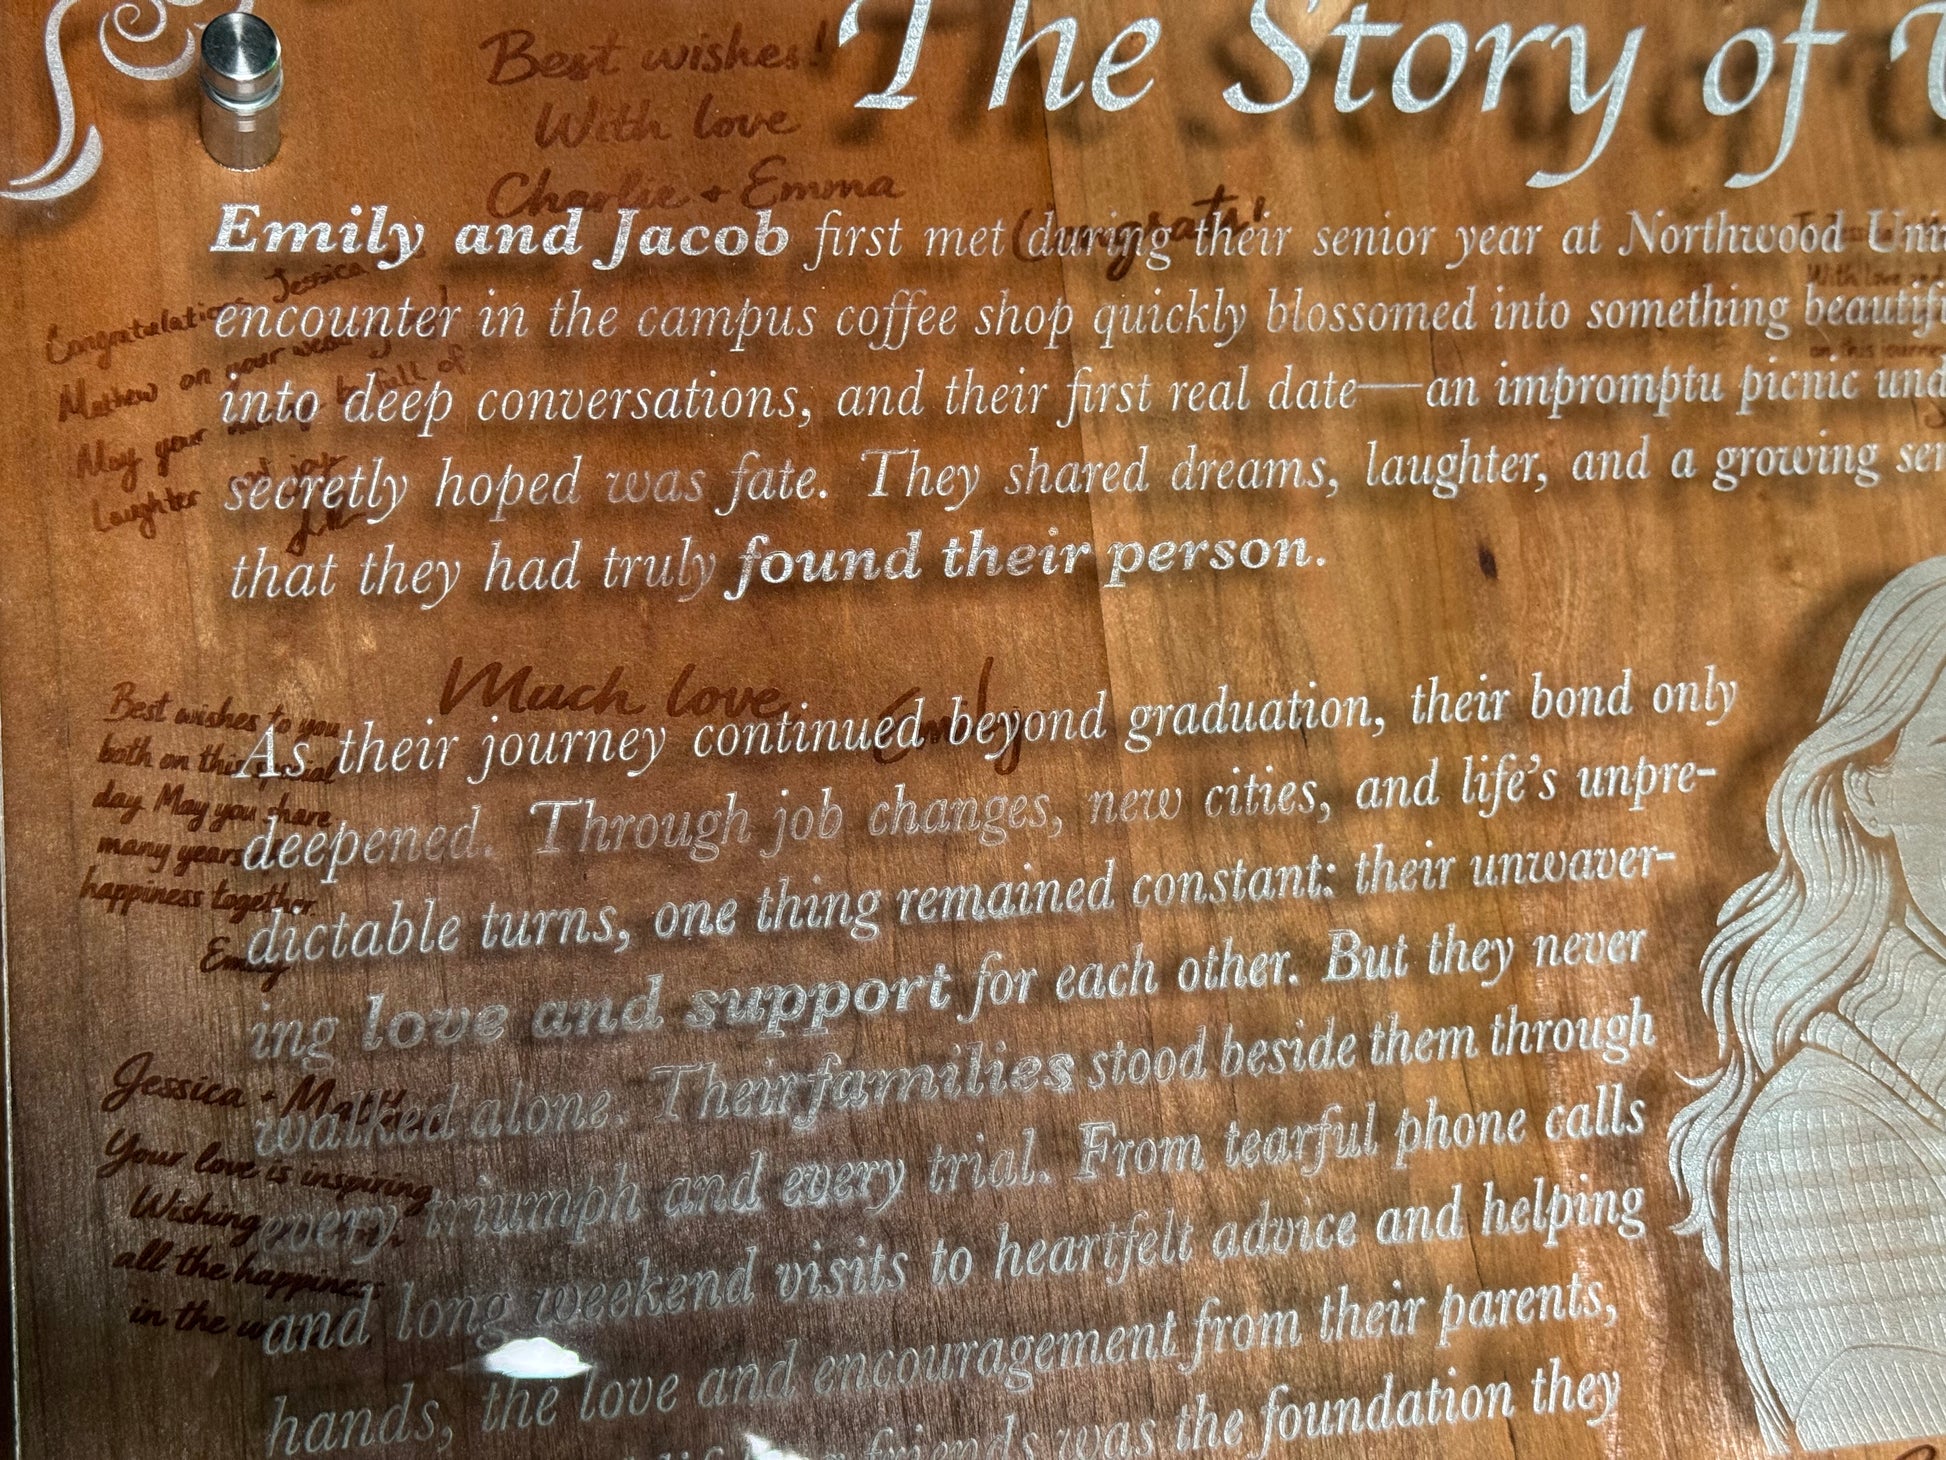 The Story of
Emily and Jacob first met during their senior year at Northwood
encounter in the campus coffee shop quickly blossomed into something
into deep conversations, and their first real date—an impromptu picnic
secretly hoped was fate. They shared dreams, laughter, and a growing
that they had truly found their person.
As their journey continued beyond graduation, their bond only
deepened. Through job changes, new cities, and life’s unpre-
dictable turns, one thing remained constant: their unwaver-
ing love and support for each other. But they never
walked alone. Their families stood beside them through
every triumph and every trial. From tearful phone calls
and long weekend visits to heartfelt advice and helping
hands, the love and encouragement from their parents,
friends was the foundation they
Best wishes!
With love
Charlie + Emma
Congrats!
Jessica
Mathew on your wedding
May your be full of
Laughter and joy
Much love,
Emily
Best wishes to you
both on this special
day. May you share
many years
happiness together.
Emily
Jessica +
Your love is inspiring
Wishing
all the happiness
in the
With love and
on this